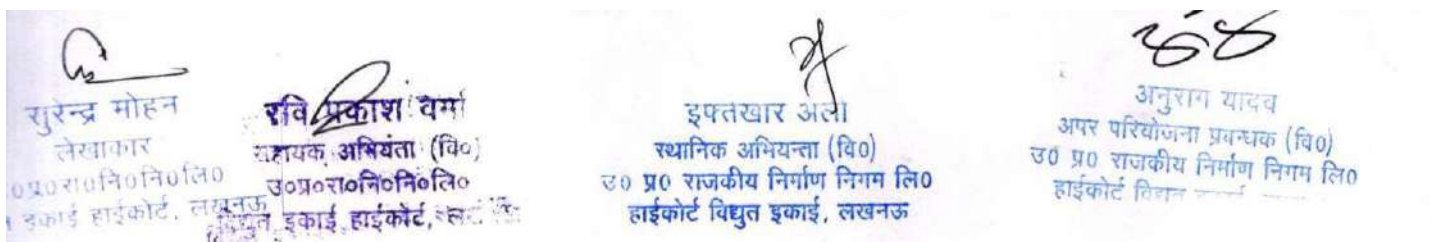 सुरेन्द्र मोहन
लेखाकार
०प्र०रा०नि०नि०लि०
इकाई हाईकोर्ट, लखनऊ
रवि प्रकाश वर्मा
सहायक अभियंता (वि०)
उ०प्र०रा०नि०नि०लि०
विद्युत इकाई, हाईकोर्ट,
इफ्तखार अली
स्थानिक अभियन्ता (वि०)
उ० प्र० राजकीय निर्माण निगम लि०
हाईकोर्ट विद्युत इकाई, लखनऊ
अनुराग यादव
अपर परियोजना प्रबन्धक (वि०)
उ० प्र० राजकीय निर्माण निगम लि०
हाईकोर्ट विद्युत